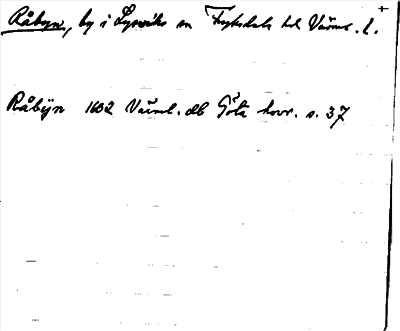 Råbyn, by i Lysviks sn Fryksdals hd Värml. l.
Råbÿn 1602 Värml. db Göta hovr. s. 37